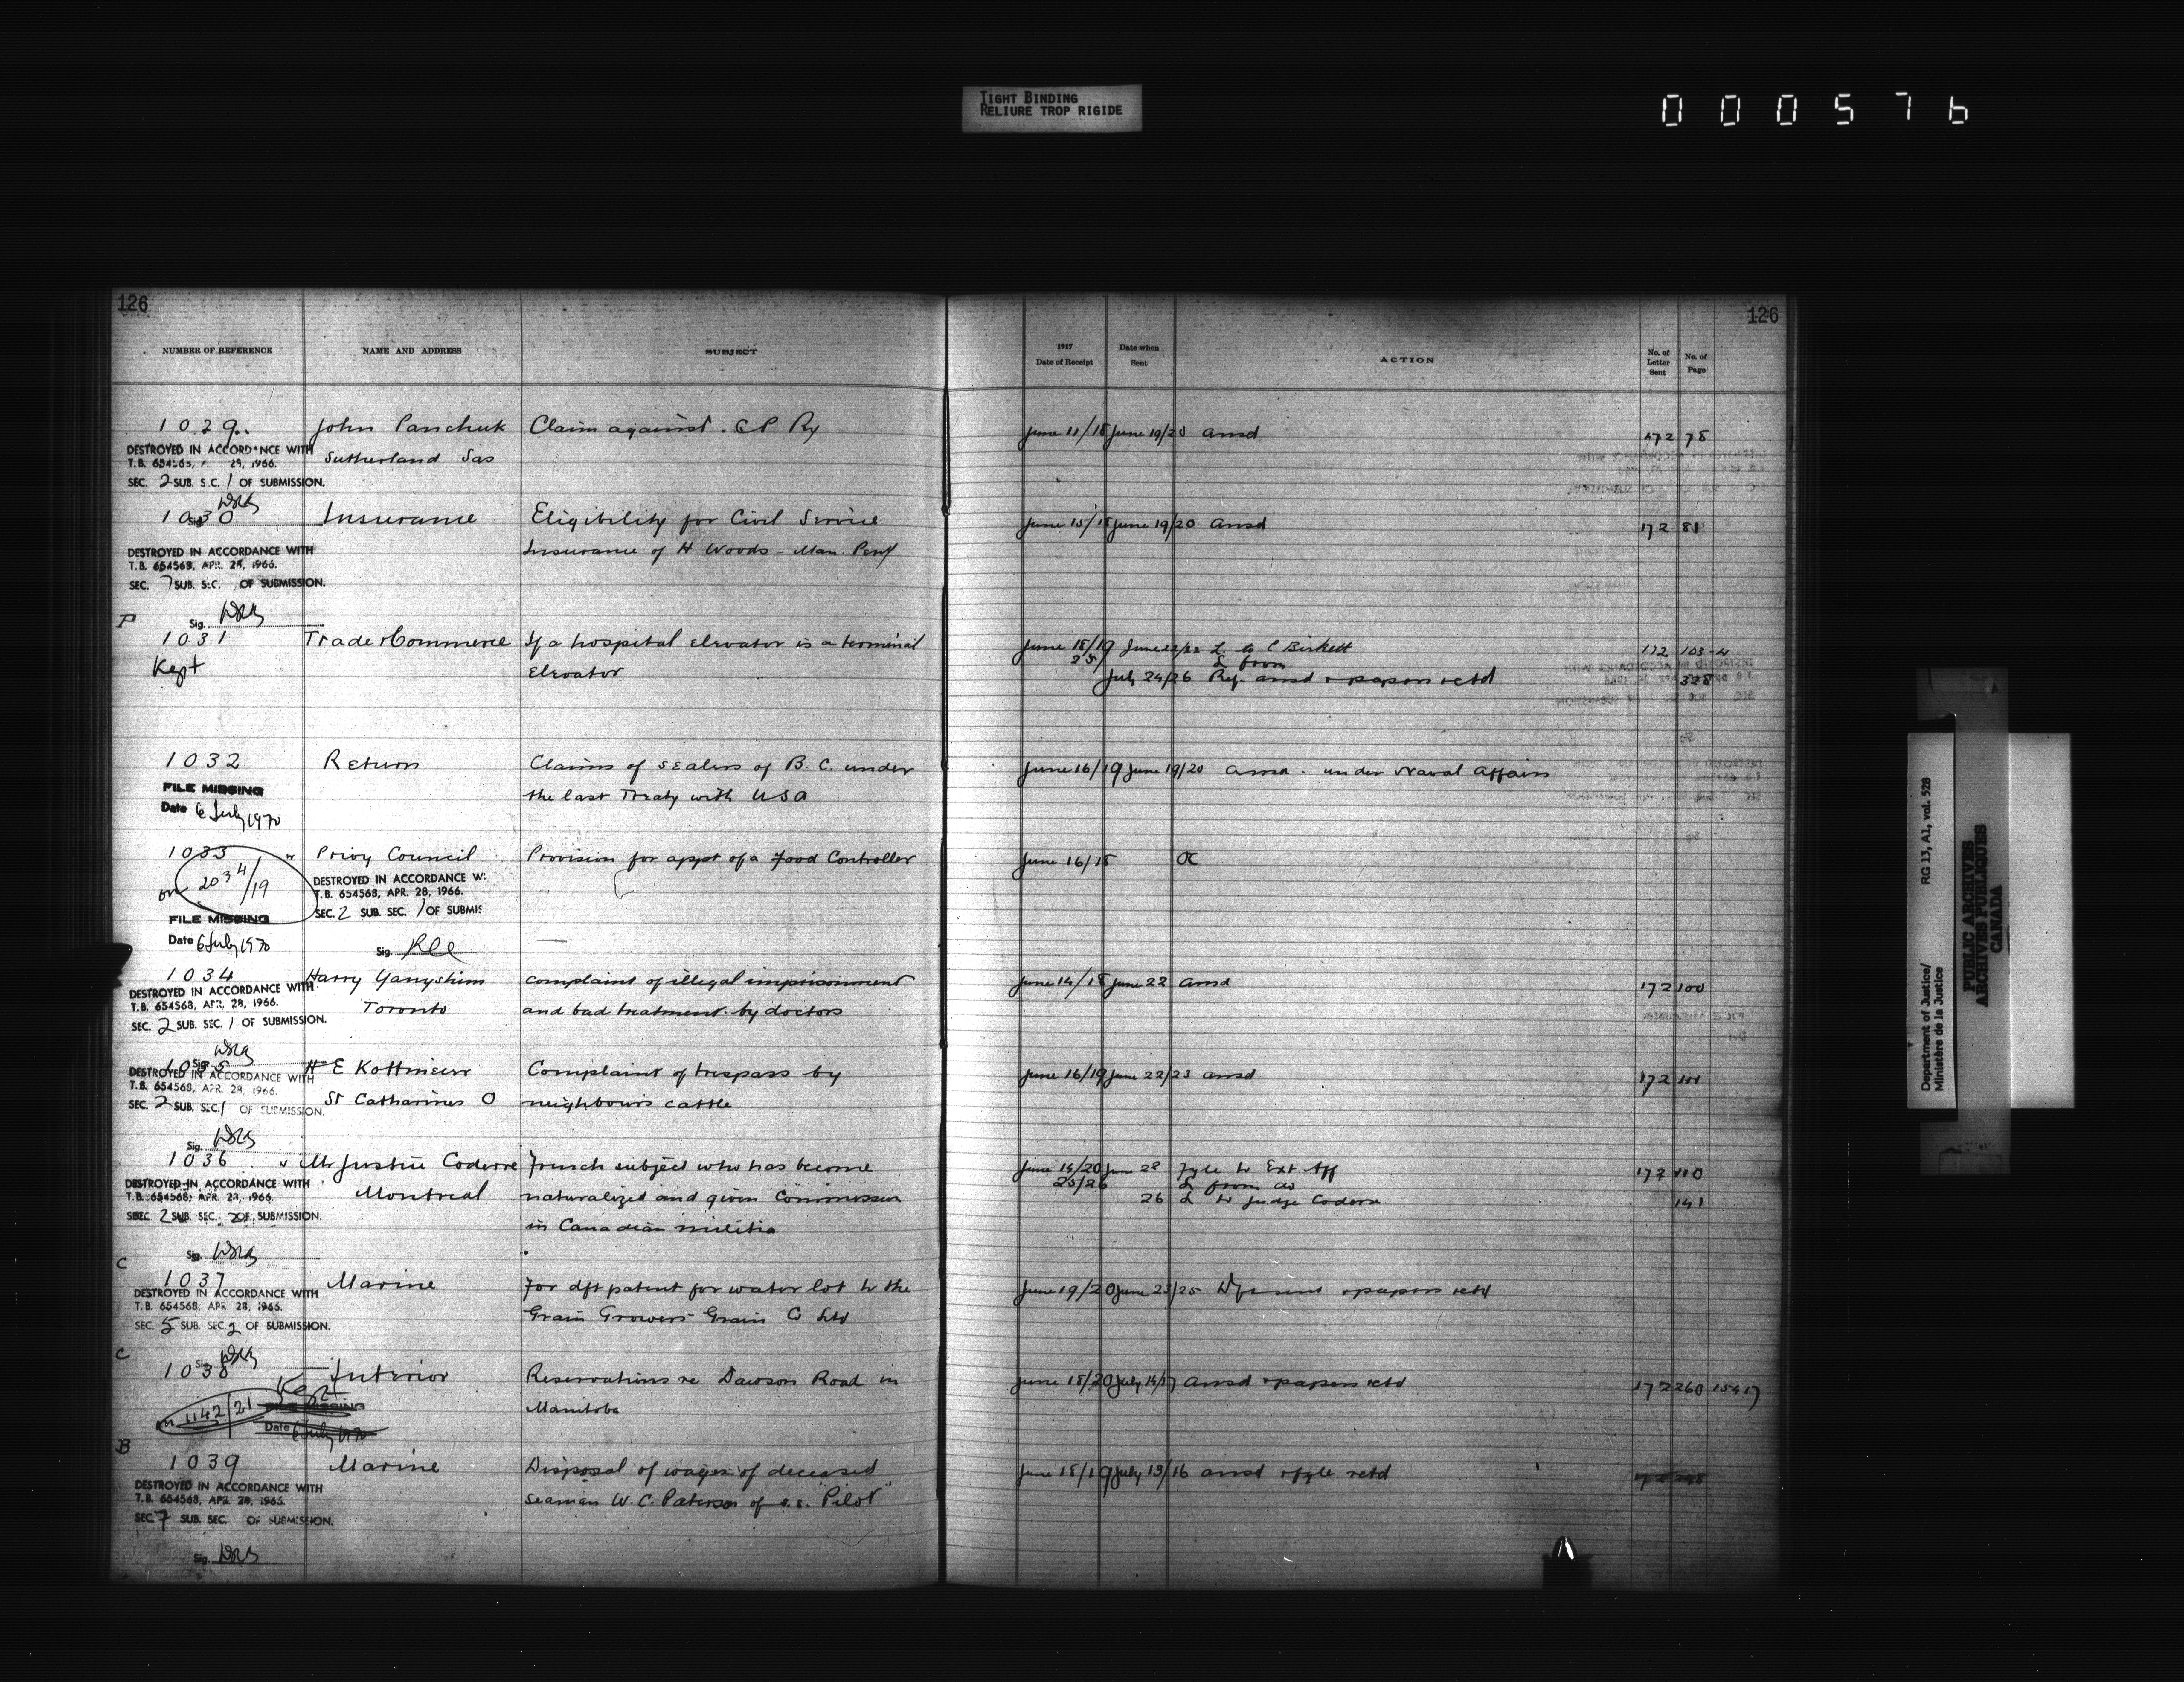 TIGHT BINDING
RELIURE TROP RIGIDE
000576
126
NUMBER OF REFERENCE NAME AND ADDRESS SUBJECT
1029 John Panchuk Claim against C P Ry
DESTROYED IN ACCORDANCE WITH
T.B. 654568, APR. 28, 1966.
Sutherland Sas
SEC. 2 SUB. SEC. 1 OF SUBMISSION.
1030 Insurance Eligibility for Civil Service
Insurance of H Woods - Man. Peny
DESTROYED IN ACCORDANCE WITH
T.B. 654568, APR. 28, 1966.
SEC. 7 SUB. SEC. OF SUBMISSION.
Sig.
P
1031 Trade & Commerce If a hospital elevator is a terminal
Kept elevator
1032 Return Claims of sealers of B. C. under
FILE MISSING the last Treaty with USA
Date 6 July 1970
1033 Privy Council Provision for appt of a Food Controller
on 2034/19
DESTROYED IN ACCORDANCE WI
T.B. 654568, APR. 28, 1966.
SEC. 2 SUB. SEC. 1 OF SUBMIS
FILE MISSING
Date 6 July 1970 Sig.
1034 Harry Complaint of illegal imprisonment
DESTROYED IN ACCORDANCE WITH
T.B. 654568, APR. 28, 1966.
Toronto and bad treatment by doctors
SEC. 2 SUB. SEC. 1 OF SUBMISSION.
Sig.
1035 H E Kottmeier Complaint of trespass by
DESTROYED IN ACCORDANCE WITH
T.B. 654568, APR. 28, 1966.
St Catharines O neighbours cattle
SEC. 2 SUB. SEC. 1 OF SUBMISSION.
Sig.
1036 Mr Justice Coderre French subject who has become
DESTROYED IN ACCORDANCE WITH
T.B. 654568, APR. 28, 1966.
Montreal naturalized and given Commission
SEC. 2 SUB. SEC. 2 OF SUBMISSION.
in Canadian militia
Sig.
C
1037 Marine For dft patent for water lot to the
DESTROYED IN ACCORDANCE WITH
T.B. 654568, APR. 28, 1966.
Grain Growers Grain Co Ltd
SEC. 5 SUB. SEC. 2 OF SUBMISSION.
C
1038 Interior Reservations re Dawson Road in
Kept
on 1142/21 FILE MISSING Manitoba
Date 6 July 1970
B
1039 Marine Disposal of wages of deceased
DESTROYED IN ACCORDANCE WITH
T.B. 654568, APR. 28, 1966.
seaman W. C. Paterson of s.s. "Pilot"
SEC. 7 SUB. SEC. OF SUBMISSION.
Sig.
126
1917 Date of Receipt Date when Sent ACTION No. of Letter Sent No. of Page
June 11/18 June 19/20 ansd 172 78
June 15/18 June 19/20 ansd 172 81
June 18/19 June 22/22 L to C Birkett 172 103-4
25/ L from
July 24/26 Rep. ansd & papers retd 328
June 16/19 June 19/20 ansd. under Naval Affairs
June 16/18 OC
June 14/18 June 22 ansd 172 100
June 16/19 June 22/23 ansd 172 101
June 14/20 June 22 Fyle to Ext Aff 172 110
25/26 L from do
26 L to Judge Coderre 141
June 19/20 June 23/25 Df sent & papers retd
June 18/20 July 14/17 ansd & papers retd 172 260 15417
June 18/19 July 13/16 ansd & fyle retd 172 248
Department of Justice/ RG 13, A1, vol. 528
Ministère de la Justice
PUBLIC ARCHIVES
ARCHIVES PUBLIQUES
CANADA